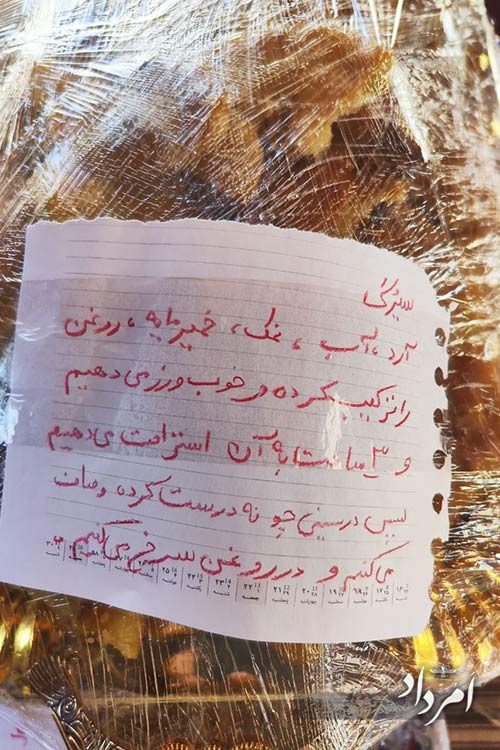 سیرگ
آرد ، آب ، نمک ، خمیرمایه ، روغن
را ترکیب کرده و خوب ورز می دهیم
و ساعت به آن استراحت می دهیم
سپس در سینی چو نه درست کرده و صاف
می کنیم و در روغن سرخ می کنیم
امرداد